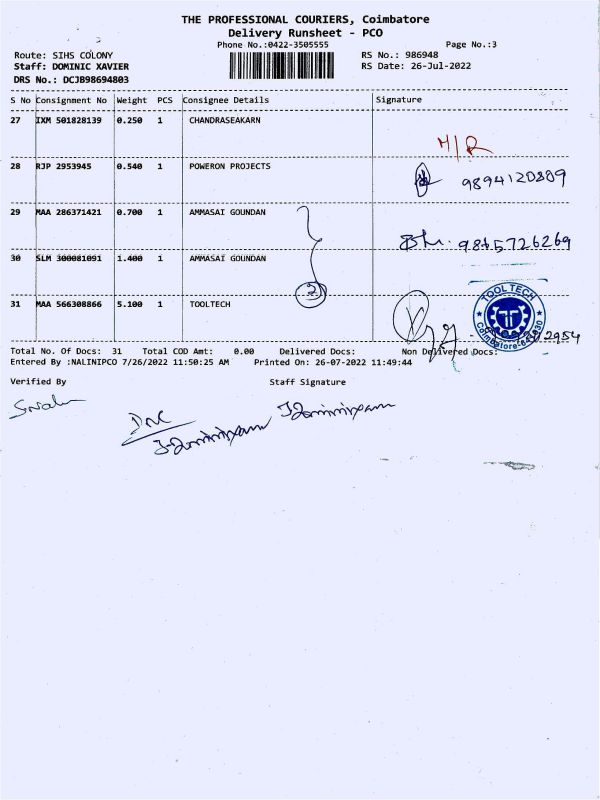 THE PROFESSIONAL COURIERS, Coimbatore
Delivery Runsheet - PCO
Phone No.:0422-3505555 Page No.:3
Route: SIHS COLONY RS No.: 986948
Staff: DOMINIC XAVIER RS Date: 26-Jul-2022
DRS No.: DCJB98694803
S No Consignment No Weight PCS Consignee Details Signature
27 IXM 501828139 0.250 1 CHANDRASEAKARN
H/R
28 RJP 2953945 0.540 1 POWERON PROJECTS 9894120309
29 MAA 286371421 0.700 1 AMMASAI GOUNDAN
9865726269
30 SLM 300081091 1.400 1 AMMASAI GOUNDAN
2
31 MAA 566308866 5.100 1 TOOLTECH
TOOL TECH
TT
Total No. Of Docs: 31 Total COD Amt: 0.00 Delivered Docs: Non Delivered Docs:
Entered By :NALINIPCO 7/26/2022 11:50:25 AM Printed On: 26-07-2022 11:49:44
Verified By Staff Signature